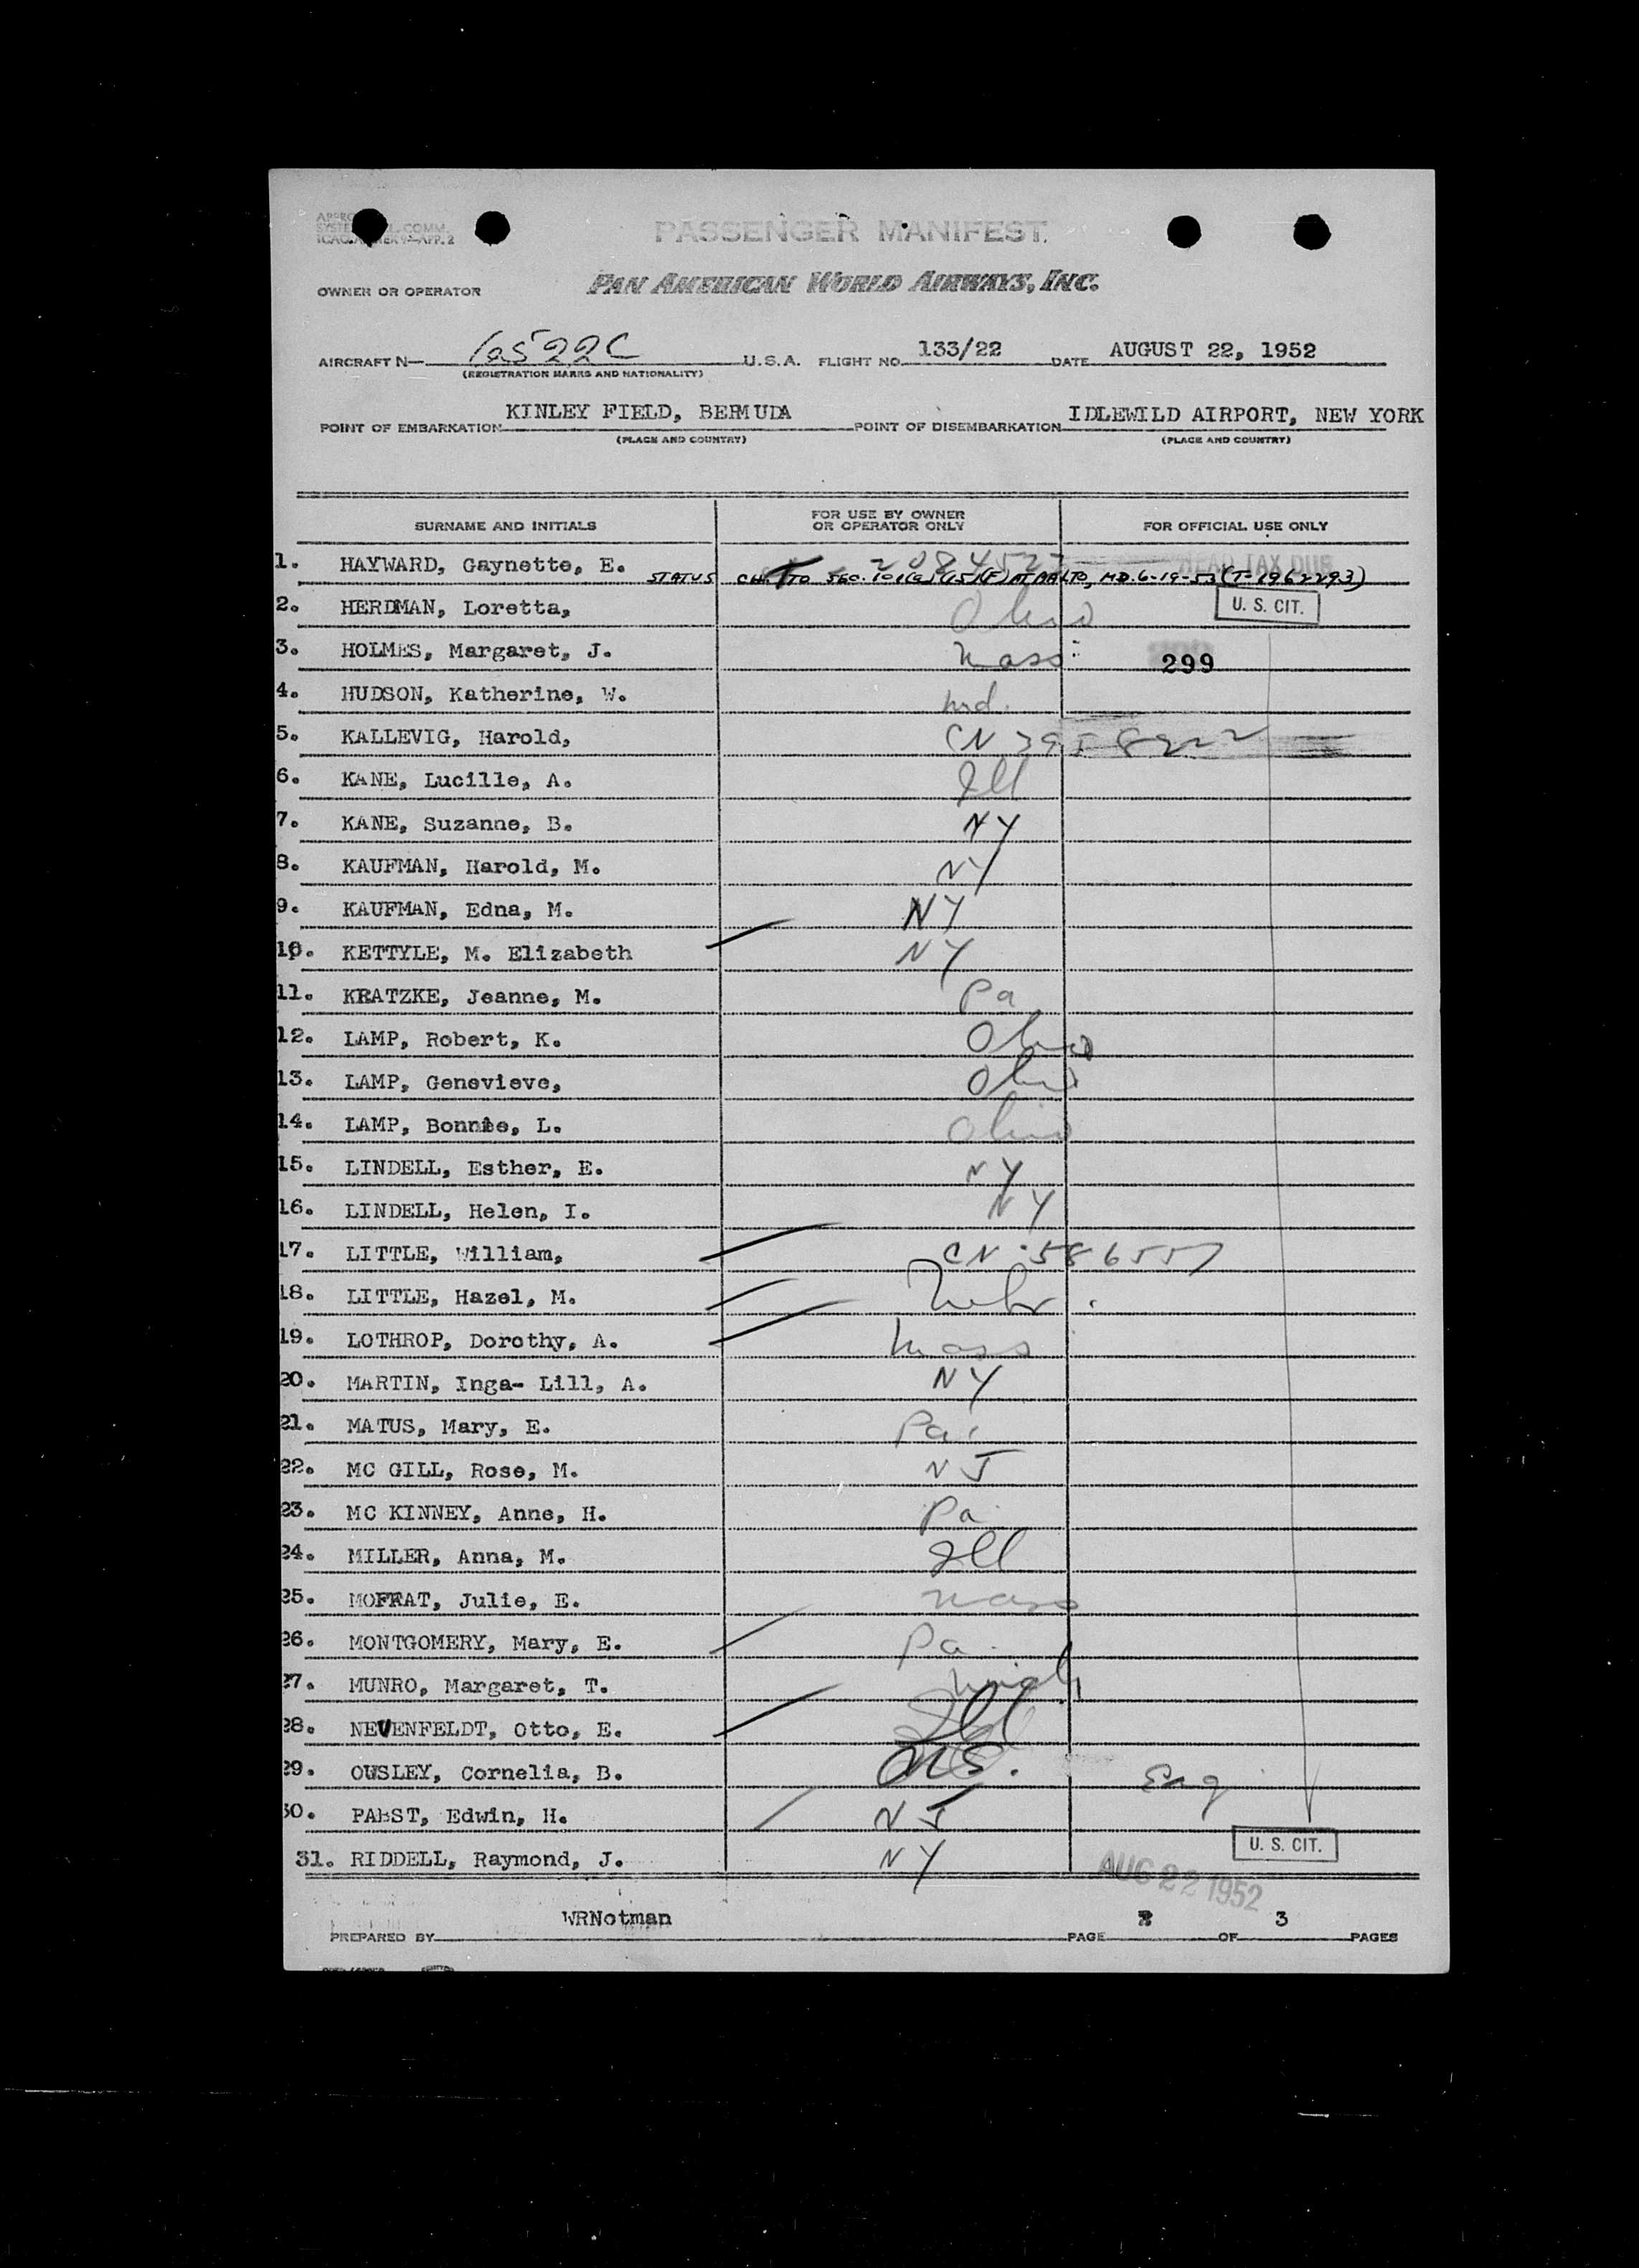 PASSENGER MANIFEST
OWNER OR OPERATOR PAN AMERICAN WORLD AIRWAYS, INC.
AIRCRAFT N— 6522C U.S.A. FLIGHT NO. 133/22 DATE AUGUST 22, 1952
(REGISTRATION MARKS AND NATIONALITY)
POINT OF EMBARKATION KINLEY FIELD, BERMUDA POINT OF DISEMBARKATION IDLEWILD AIRPORT, NEW YORK
(PLACE AND COUNTRY) (PLACE AND COUNTRY)
SURNAME AND INITIALS FOR USE BY OWNER OR OPERATOR ONLY FOR OFFICIAL USE ONLY
1. HAYWARD, Gaynette, E. HEAD TAX DUE
STATUS TO SEC. BALTO, MD. 6-19-53 (T-1962293)
2. HERDMAN, Loretta, Ohio U. S. CIT.
3. HOLMES, Margaret, J. Mass 299
4. HUDSON, Katherine, W. Md.
5. KALLEVIG, Harold, CN
6. KANE, Lucille, A. Ill
7. KANE, Suzanne, B. NY
8. KAUFMAN, Harold, M. NY
9. KAUFMAN, Edna, M. NY
10. KETTYLE, M. Elizabeth NY
11. KRATZKE, Jeanne, M. Pa
12. LAMP, Robert, K. Ohio
13. LAMP, Genevieve, Ohio
14. LAMP, Bonnie, L. Ohio
15. LINDELL, Esther, E. NY
16. LINDELL, Helen, I. NY
17. LITTLE, William, CN 586557
18. LITTLE, Hazel, M. Nebr.
19. LOTHROP, Dorothy, A. Mass
20. MARTIN, Inga- Lill, A. NY
21. MATUS, Mary, E. Pa.
22. MC GILL, Rose, M. NJ
23. MC KINNEY, Anne, H. Pa
24. MILLER, Anna, M. Ill
25. MOFFAT, Julie, E. Mass
26. MONTGOMERY, Mary, E. Pa.
27. MUNRO, Margaret, T. Mich
28. NEUENFELDT, Otto, E. Ill
29. OWSLEY, Cornelia, B. Eng
30. PABST, Edwin, H. NJ
31. RIDDELL, Raymond, J. NY U. S. CIT.
AUG 22 1952
PREPARED BY WRNotman PAGE 2 OF 3 PAGES